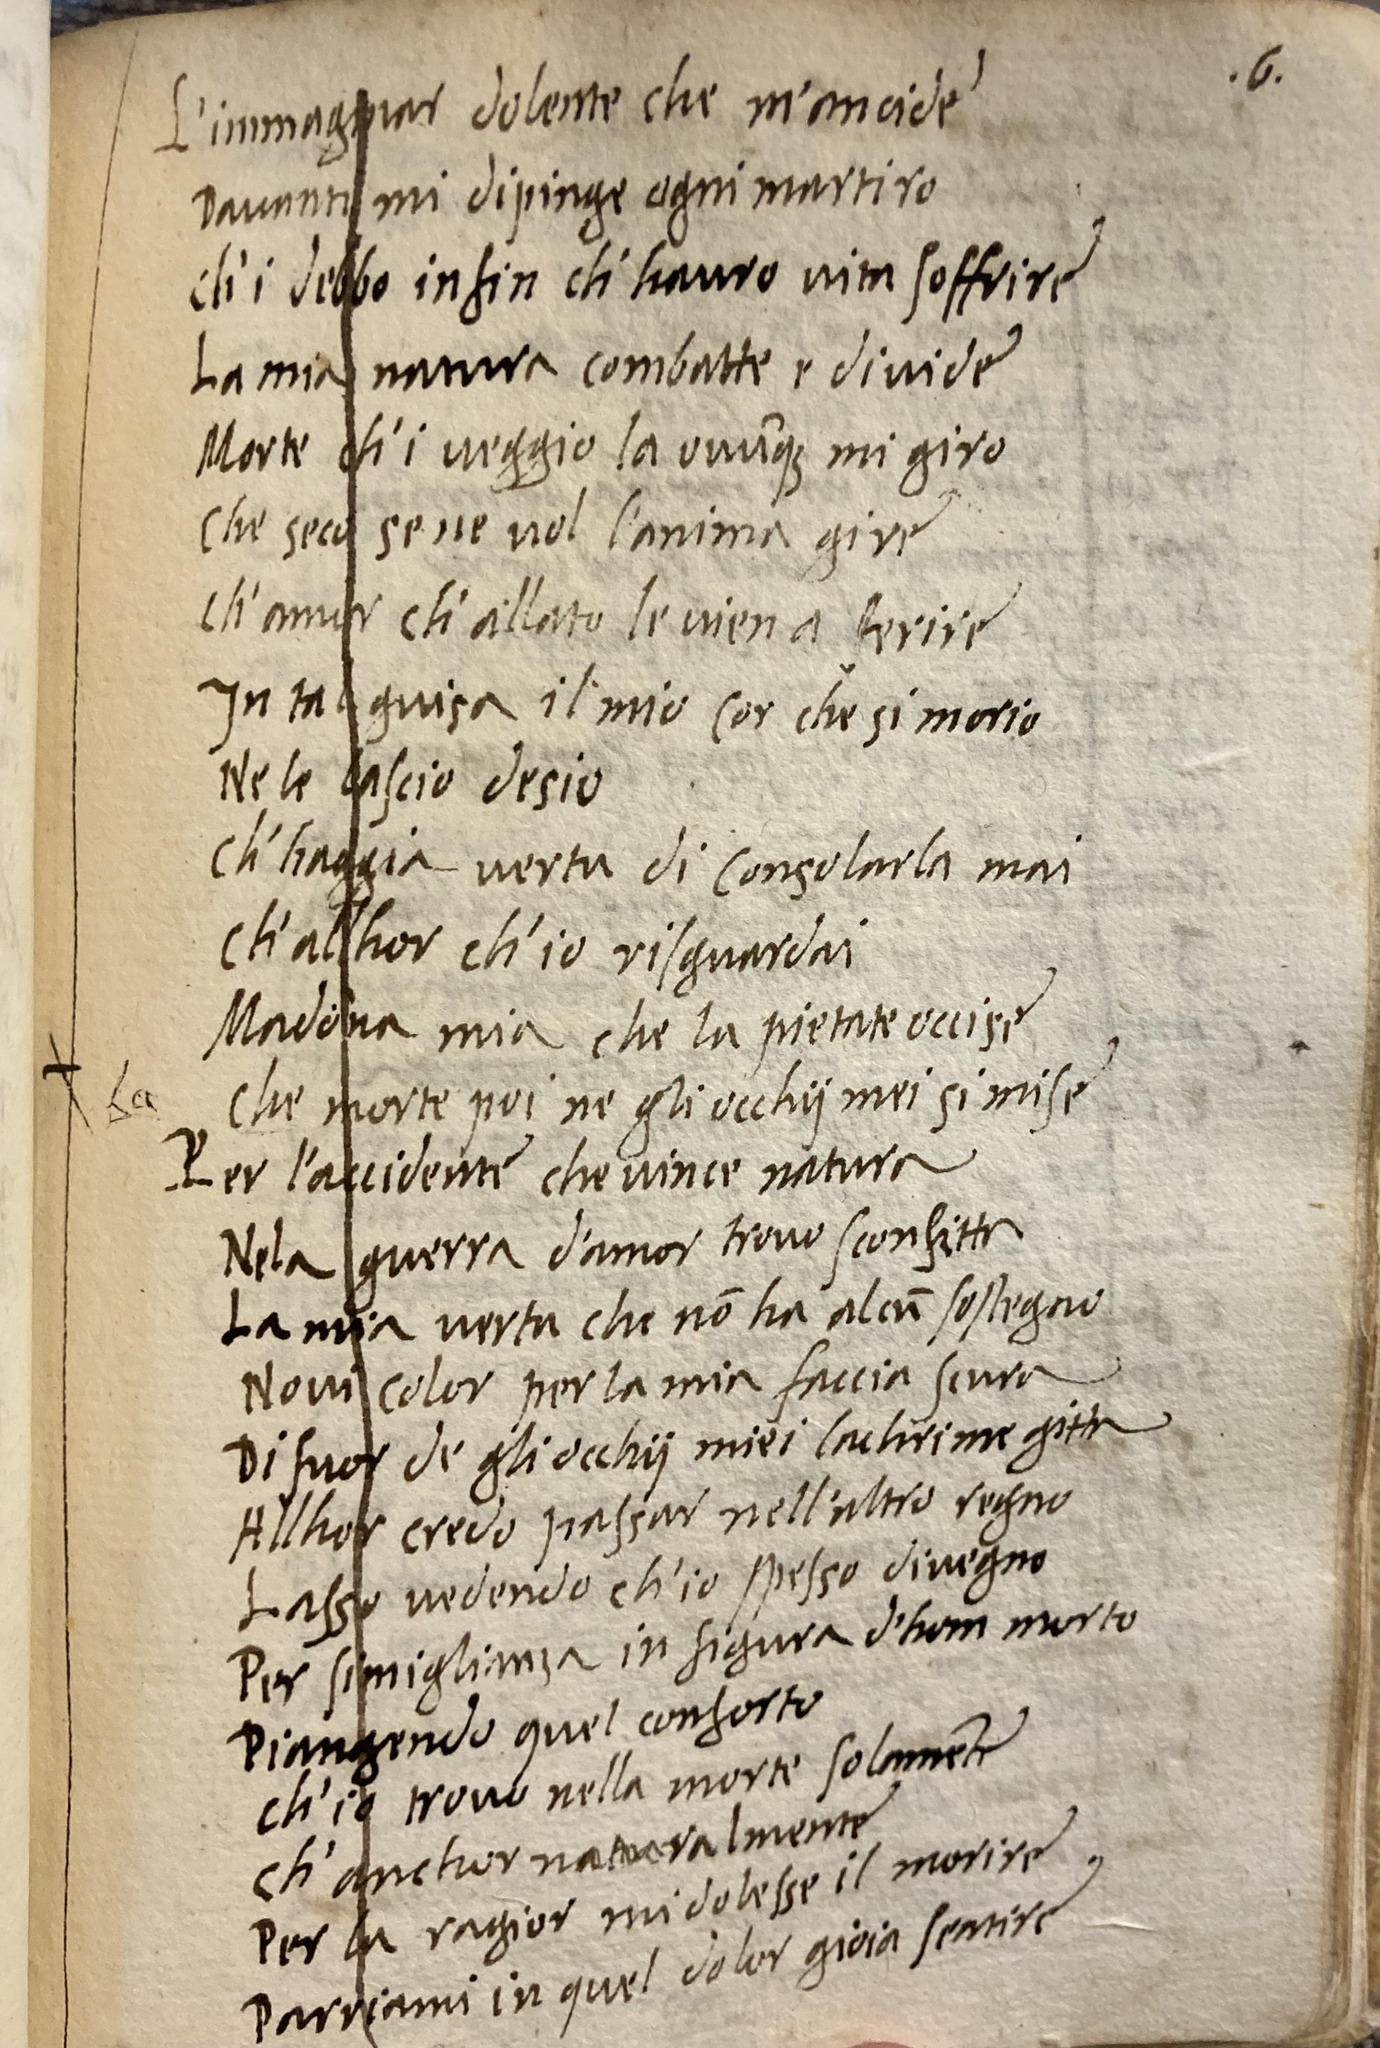 .6.
L'immaginar dolente che m'ancide
Davanti mi dipinge ogni martiro
Ch'i debbo infin ch'hauro uita soffrire
La mia natura combatte e diuide
Morte ch'i ueggio la ouunq; mi giro
Che seco se ne uol l'anima gire
Ch'amor ch'allato le uien a ferire
In tal guisa il mio cor che si morio
Ne le lascio desio
Ch'haggia uertu di consolarla mai
Ch'allhor ch'io risguardai
Madonna mia che la pietate occise
La
Che morte poi ne gli occhij mei si mise
Per l'accidente che uince natura
Nela guerra d'amor trouo sconfitta
La mia uertu che nō ha alcū sostegno
Noui color per la mia faccia scura
Di fuor de gli occhij miei lachrime gitta
Allhor credo passar nell'altro regno
Lasso uedendo ch'io spesso diuegno
Per simiglianza in figura d'hom morto
Piangendo quel conforto
Ch'io trouo nella morte solamēte
Ch'anchor naturalmente
Per la ragior mi dolesse il morire
Parriami in quel dolor gioia sentire